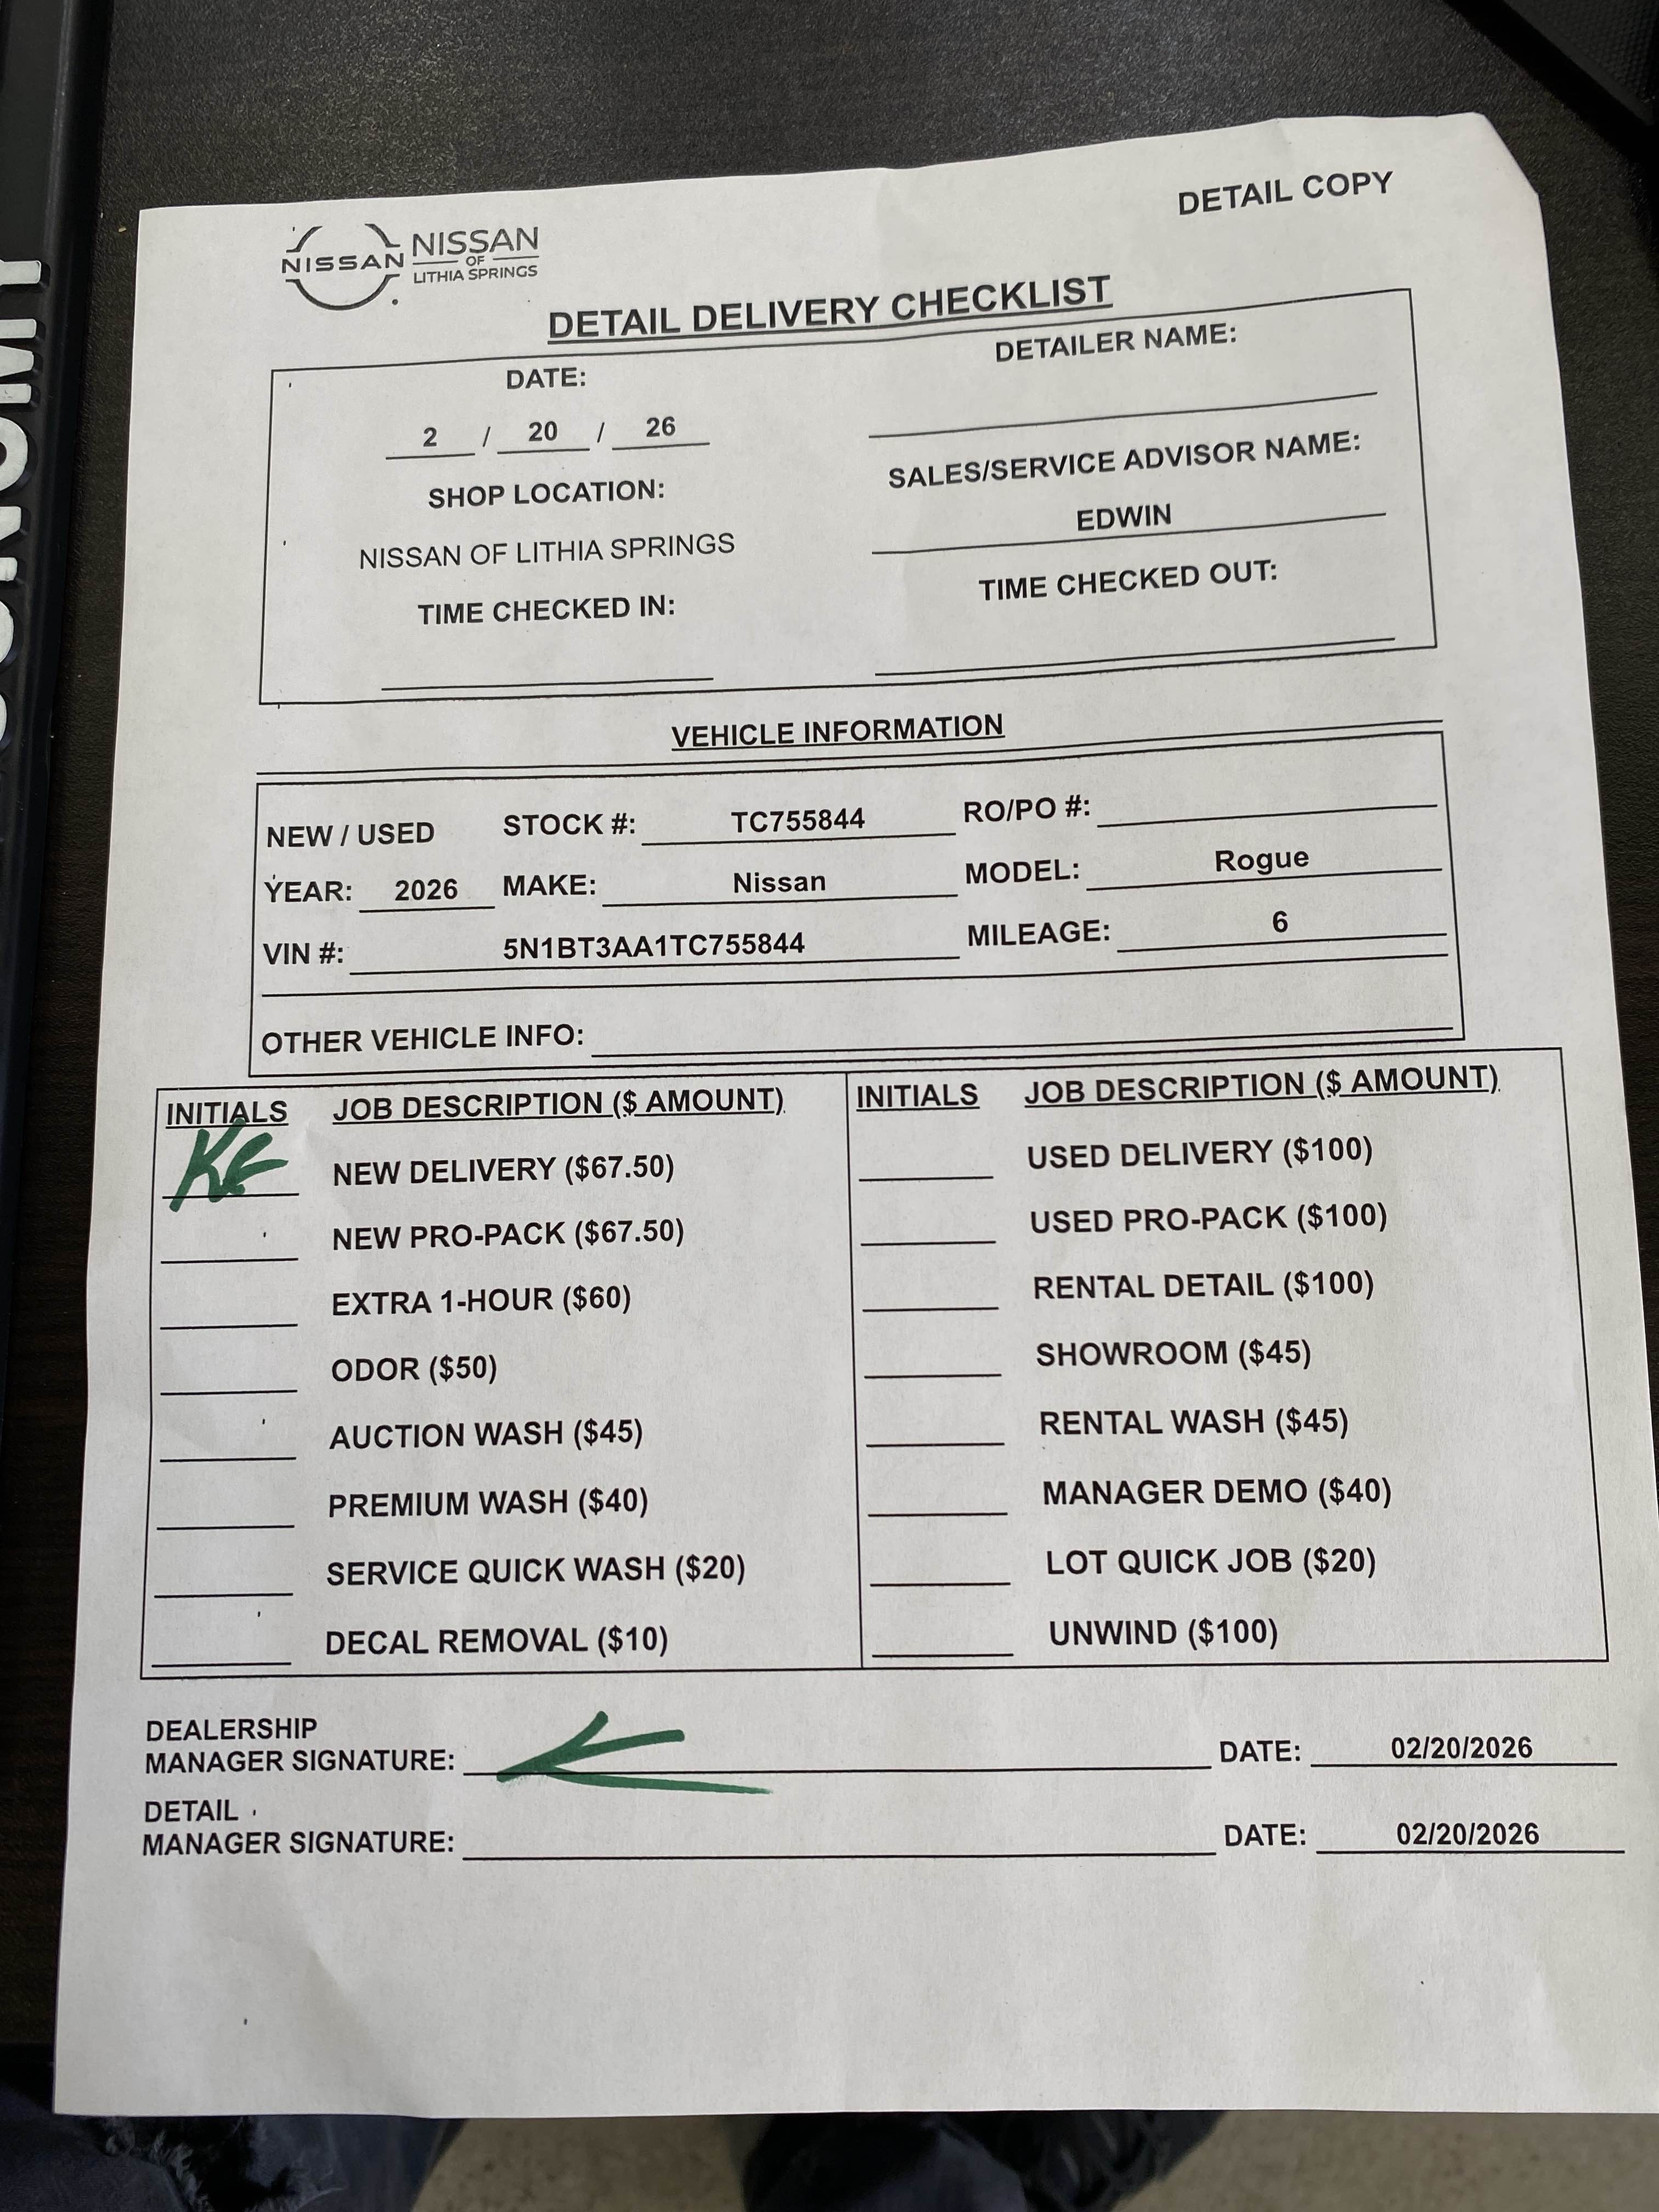 DETAIL COPY
NISSAN NISSAN
OF
LITHIA SPRINGS
DETAIL DELIVERY CHECKLIST
DATE:
2 / 20 / 26
SHOP LOCATION:
NISSAN OF LITHIA SPRINGS
TIME CHECKED IN:
DETAILER NAME:
SALES/SERVICE ADVISOR NAME:
EDWIN
TIME CHECKED OUT:
VEHICLE INFORMATION
NEW / USED STOCK #: TC755844 RO/PO #:
YEAR: 2026 MAKE: Nissan MODEL: Rogue
VIN #: 5N1BT3AA1TC755844 MILEAGE: 6
OTHER VEHICLE INFO:
INITIALS JOB DESCRIPTION ($ AMOUNT)
KE NEW DELIVERY ($67.50)
NEW PRO-PACK ($67.50)
EXTRA 1-HOUR ($60)
ODOR ($50)
AUCTION WASH ($45)
PREMIUM WASH ($40)
SERVICE QUICK WASH ($20)
DECAL REMOVAL ($10)
INITIALS JOB DESCRIPTION ($ AMOUNT)
USED DELIVERY ($100)
USED PRO-PACK ($100)
RENTAL DETAIL ($100)
SHOWROOM ($45)
RENTAL WASH ($45)
MANAGER DEMO ($40)
LOT QUICK JOB ($20)
UNWIND ($100)
DEALERSHIP
MANAGER SIGNATURE: DATE: 02/20/2026
DETAIL
MANAGER SIGNATURE: DATE: 02/20/2026